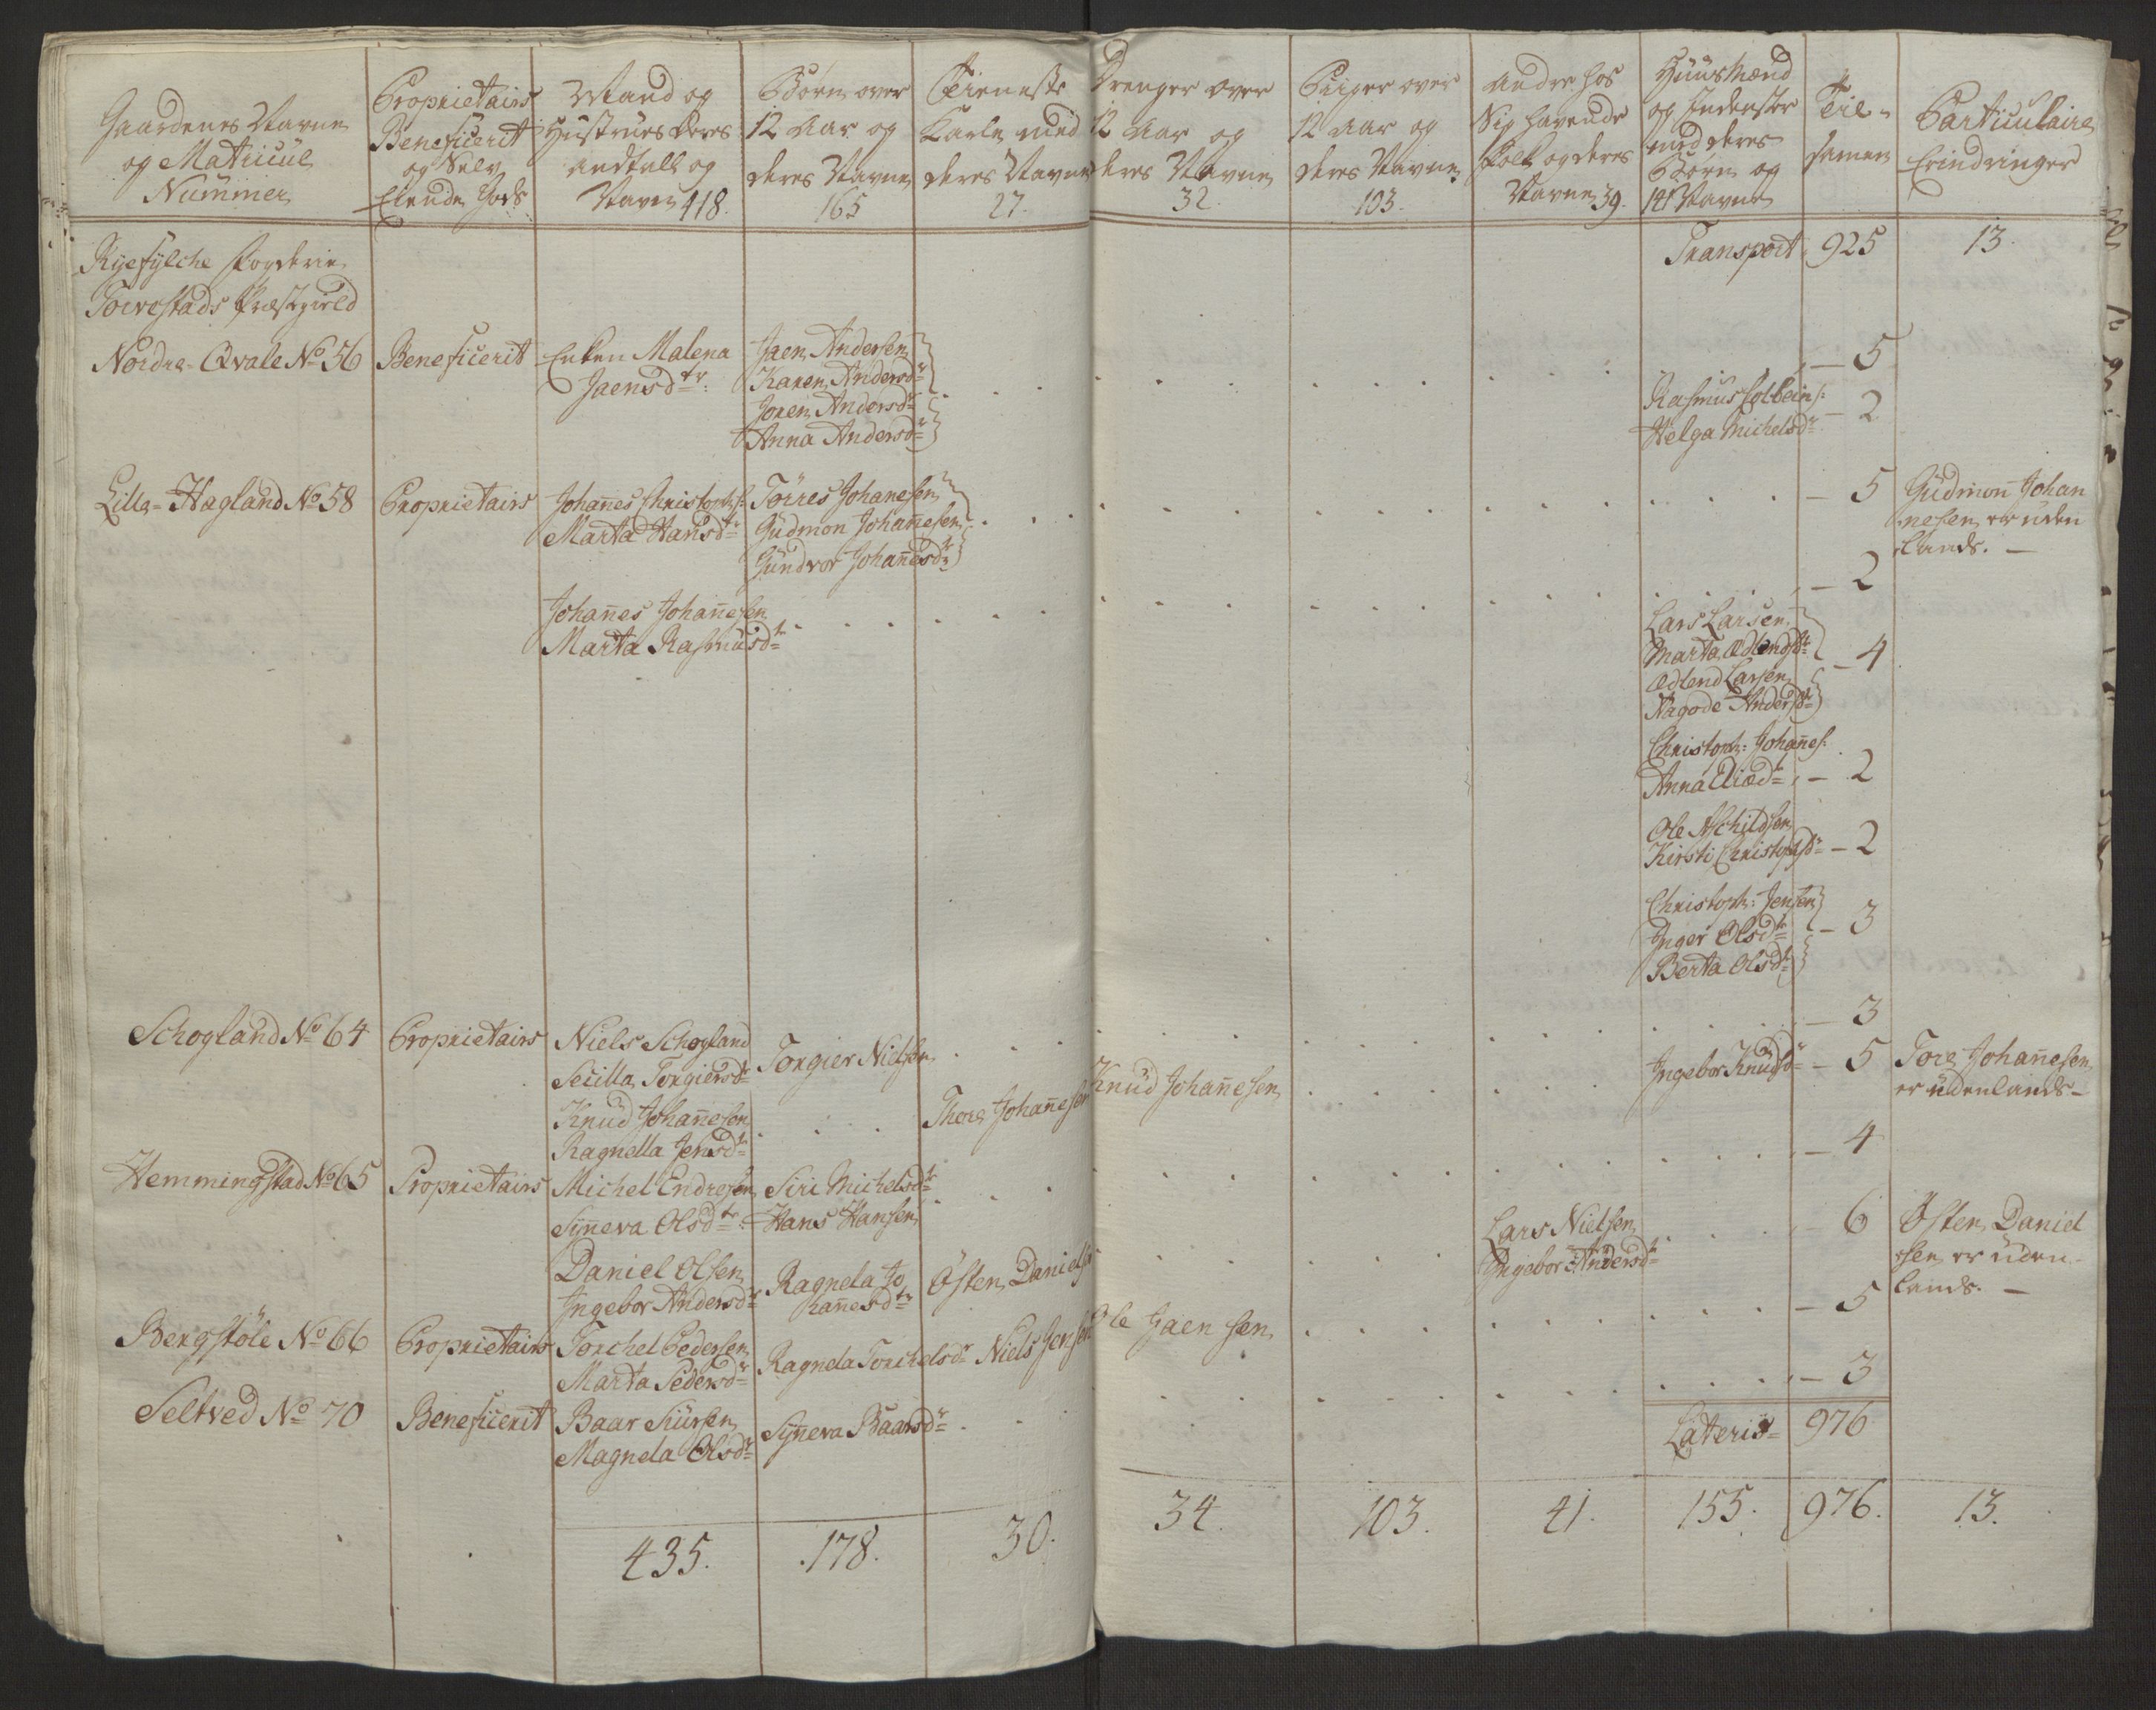 Gaardenes Navne
og Matricul
Nummer
Proprietairs
Beneficerit
og Selv
Eiende Gods
Mand og
Hustrues deres
Andtall og
Navne 418.
Børn over
12 Aar og
deres Navne
165
Tieneste
Karle med
deres Navne
27.
Drenger over
12 Aar og
deres Navne
32.
Piiger over
12 Aar og
deres Navne
103.
Andre hos
Sig havende
Folk og deres
Navne 39.
Huusmænd
og Inderster
med deres
Børn og
141 Navne
Til-
samen
Particulaire
Erindringer
Ryefylche Fogderie
Torvestads Præstgield
Transport 925
13.
Nordre-Qvale No 56
Beneficerit
Enken Malena
Jaensdtr:
Jaen Andersen
Karen Andersdr
Joren Andersdr
Anna Andersdr
- 5
Rasmus Colbeins:
Helga Michelsdr
- 2
Lille-Hagland No 58
Proprietairs
Johañes Christophs:
Marta Hansdtr
Törres Johanesen
Gudmon Johañesen
Gundvor Johañesdtr
- 5
Gudmon Johan
nesen er uden
lands. -
Johañes Johañesen
Marta Rasmusdtr
- 2
Lars Larsen
Marta Ødlendsdtr
Ødlend Larsen
Nagode Andersdtr
- 4
Christoph: Johañes:
Anna Eliædtr
- 2
Ole Aschildsen
Kirsti Christophsdr
- 2
Christoph: Jensen
Inger Olsdtr
Berta Olsdtr
- 3
Schogland No 64
Proprietairs
Niels Schogland
Secilla Torgiersdtr
Torgier Nielsen
- 3
Knud Johañesen
Ragnella Jensdtr
Thore Johañesen
Knud Johañesen
Ingebor Knudsdr
- 5
Tore Johañesen
er udenlands -
Hemmingstad No 65
Proprietairs
Michel Endresen
Syñeva Olsdtr:
Siri Michelsdtr
Hans Hansen
- 4
Daniel Olsen
Ingebor Andersdtr
Ragnela Jo
hañesdtr
Östen Danielsen
Lars Nielsen
Ingebor Andersdtr
- 6
Østen Daniel
sen er uden-
lands. -
Bergstöle No 66
Proprietairs
Torchel Pedersen
Marta Pedersdr
Ragnela Torchelsdr
Niels Jensen
Ole Jaensen
- 5
Seltved No 70
Beneficerit
Baar Siursen
Magnela Olsdr
Syñeva Baarsdr
- 3
Lateris=
976
435.
178.
30.
34.
103.
41.
155.
976.
13.